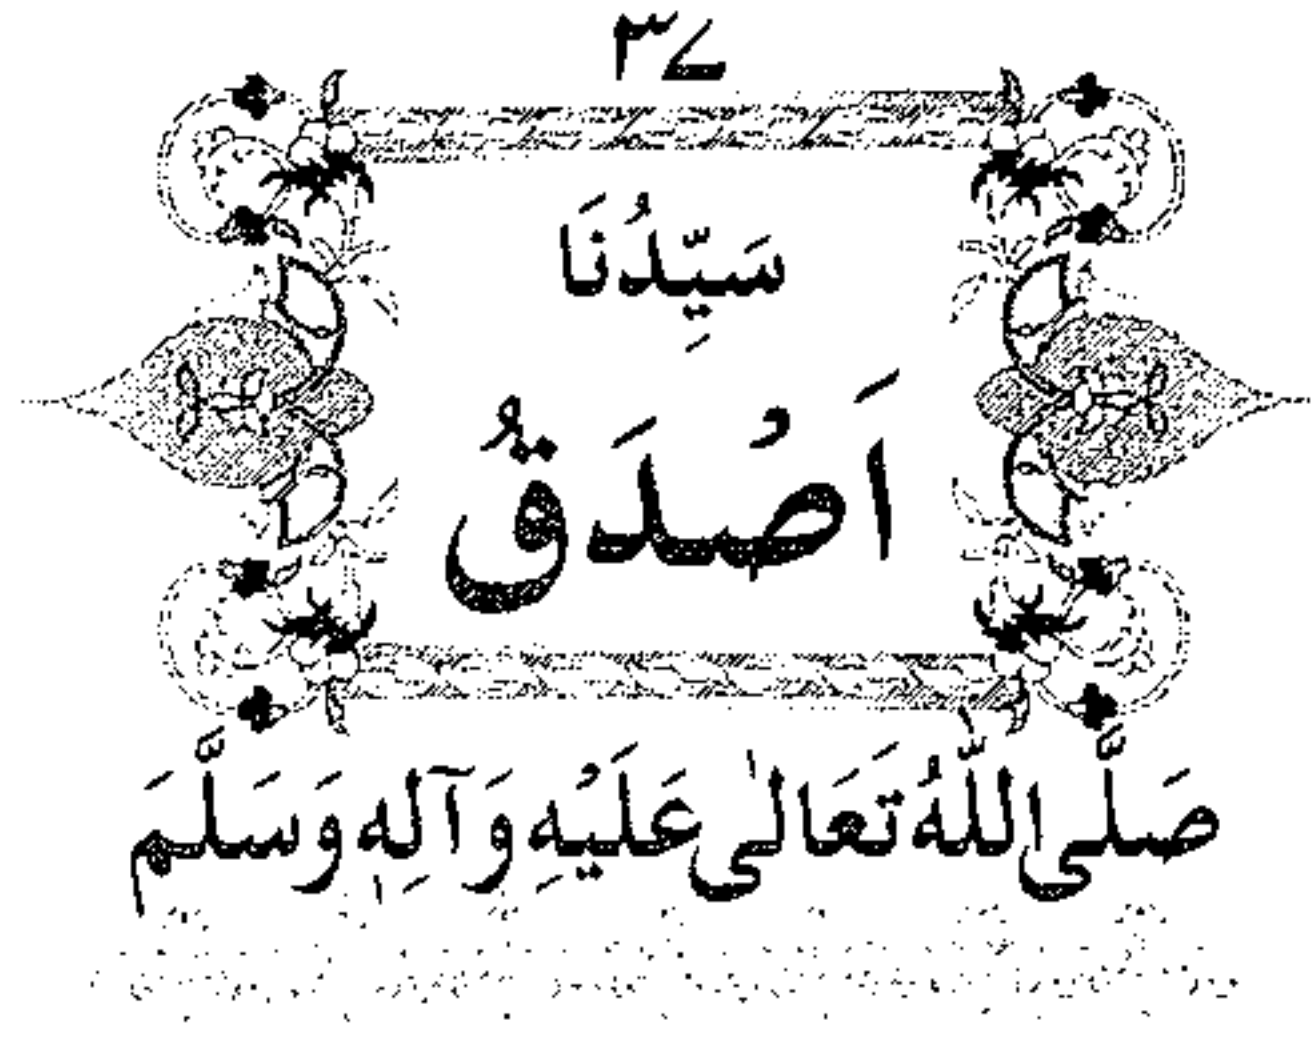 ۳۷
سَيِّدُنَا
اَصْدَقُ
صَلَّى اللّٰهُ تَعَالٰى عَلَيْهِ وَآلِهٖ وَسَلَّمَ